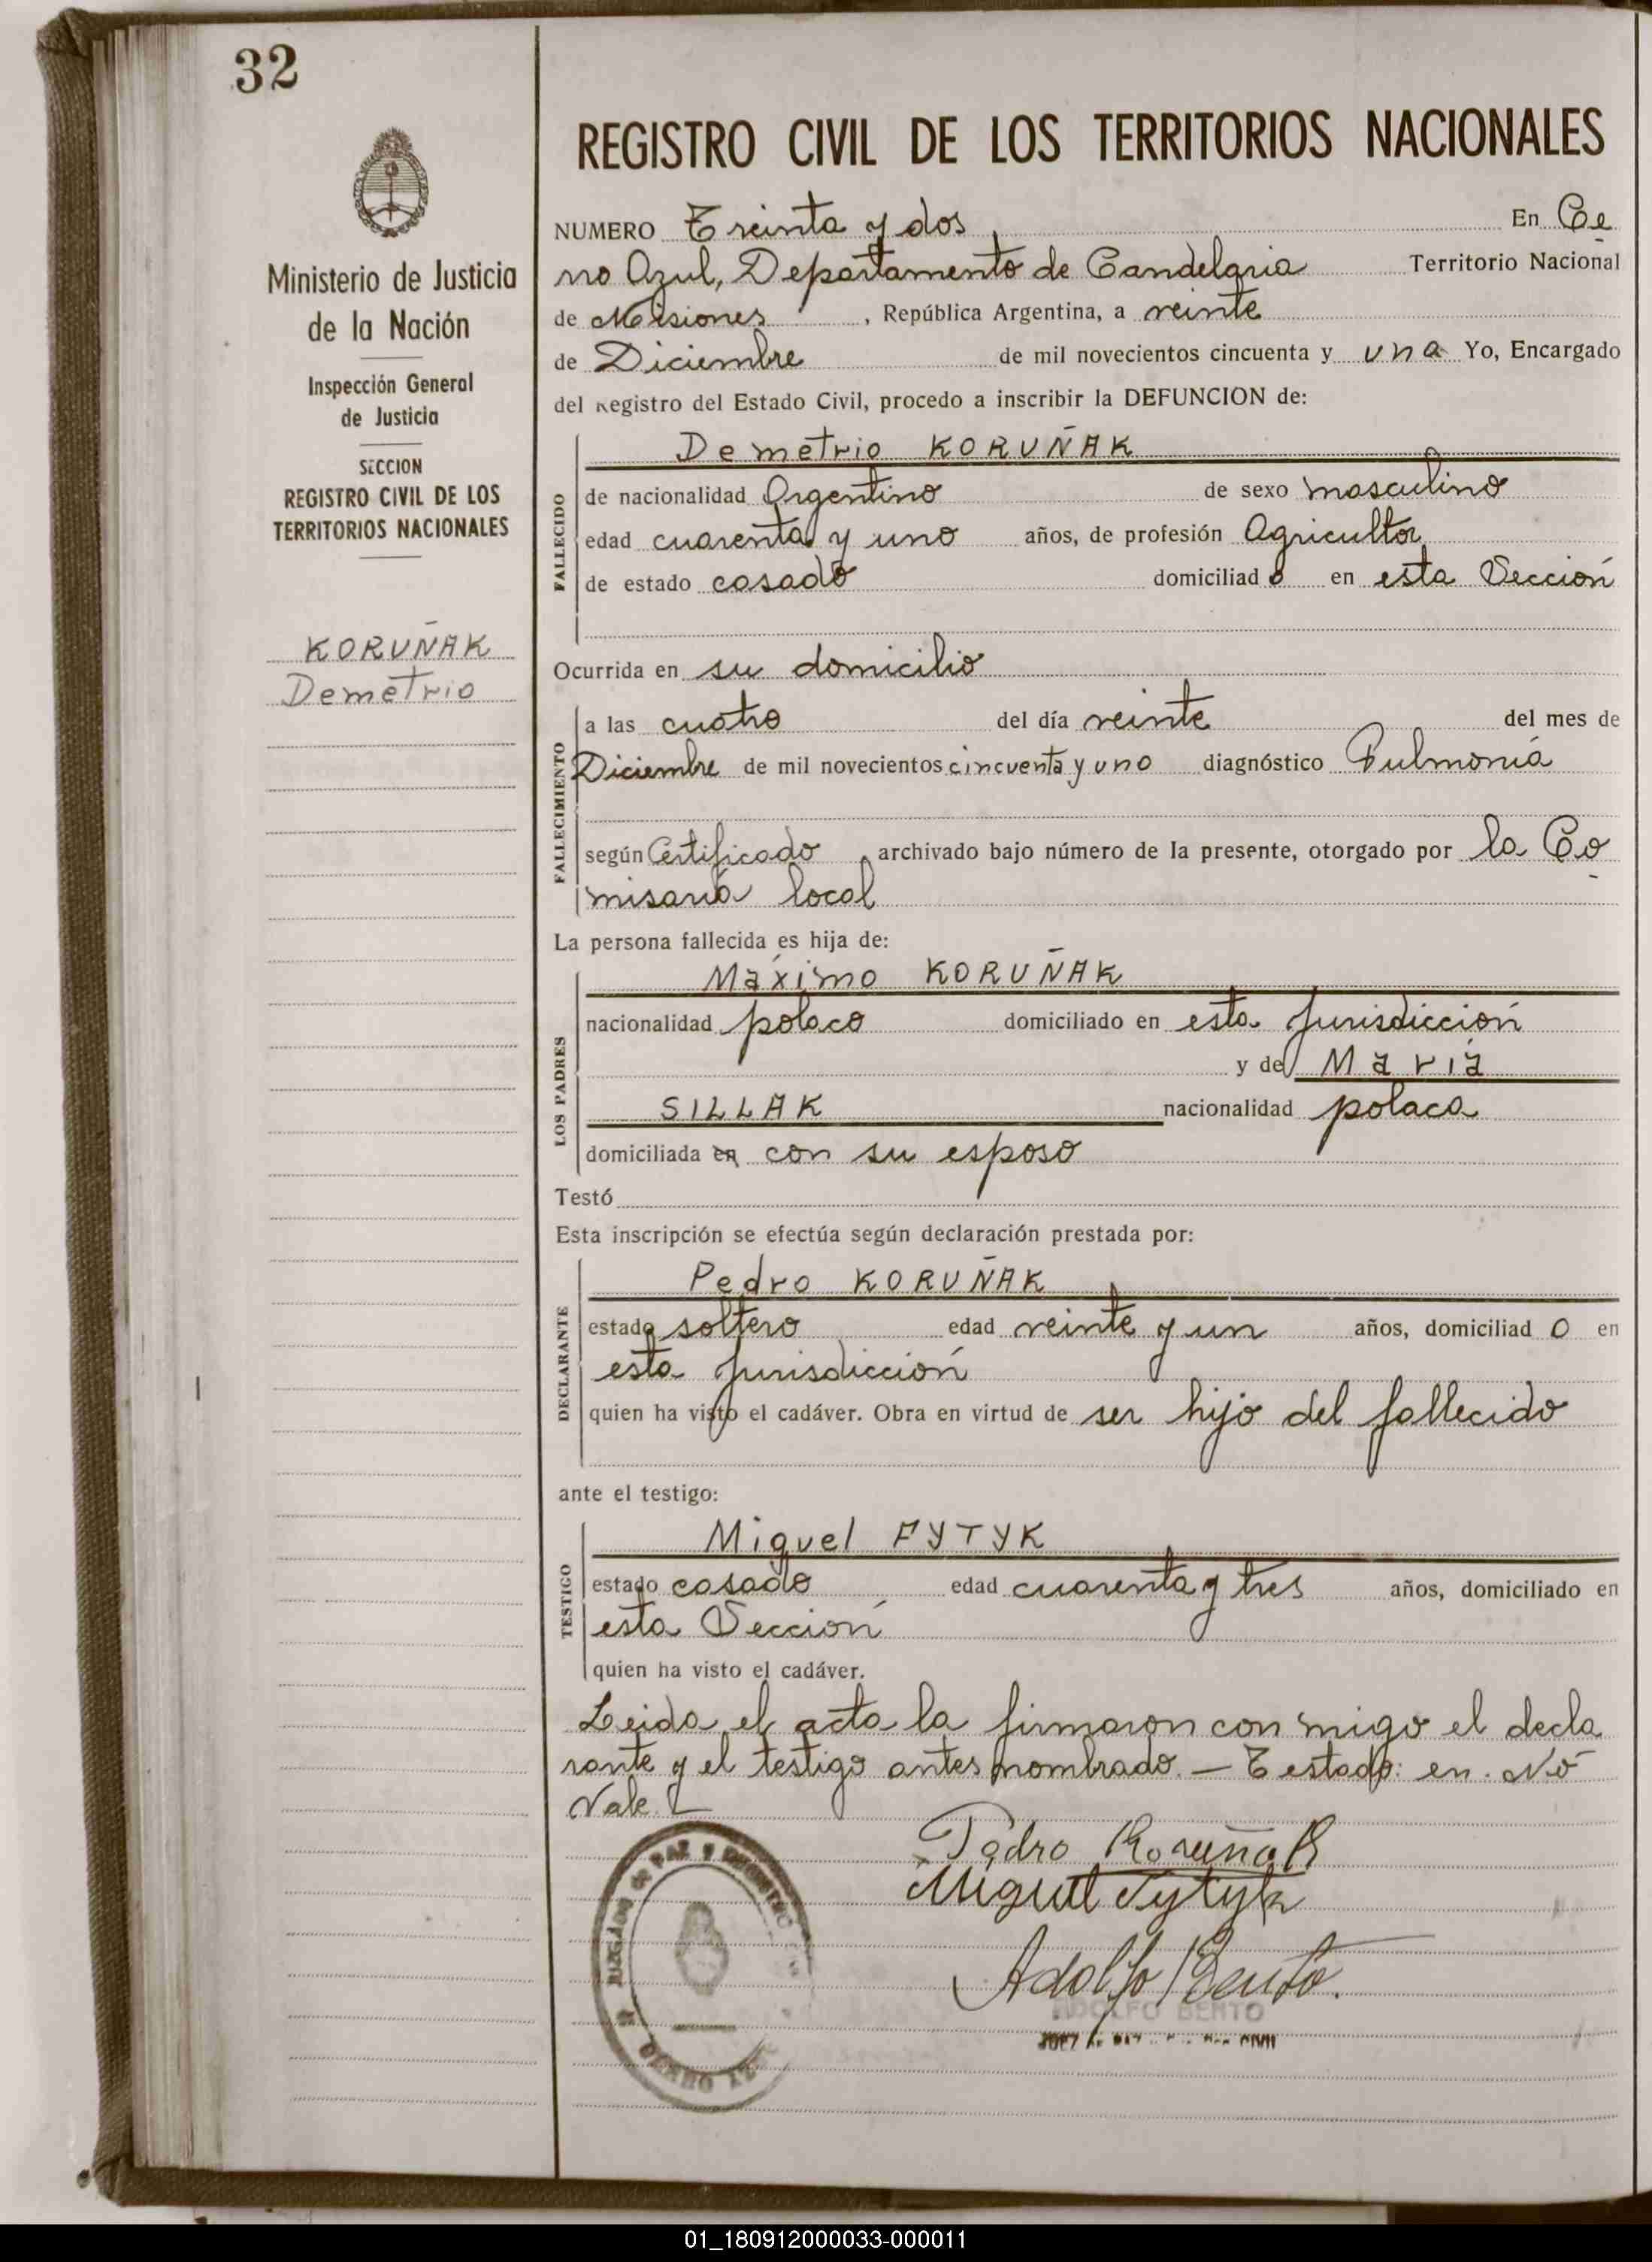 32
Ministerio de Justicia
de la Nación
Inspección General
de Justicia
SECCION
REGISTRO CIVIL DE LOS
TERRITORIOS NACIONALES
KORUÑAK
Demetrio
REGISTRO CIVIL DE LOS TERRITORIOS NACIONALES
NUMERO Treinta y dos En Ce
rro Azul, Departamento de Candelaria Territorio Nacional
de Misiones, República Argentina, a veinte
de Diciembre de mil novecientos cincuenta y una Yo, Encargado
del Registro del Estado Civil, procedo a inscribir la DEFUNCION de:
FALLECIDO
Demetrio KORUÑAK
de nacionalidad Argentino de sexo masculino
edad cuarenta y uno años, de profesión Agricultor
de estado casado domiciliado en esta Sección
Ocurrida en su domicilio
FALLECIMIENTO
a las cuatro del día veinte del mes de
Diciembre de mil novecientos cincuenta y uno diagnóstico Pulmonía
según Certificado archivado bajo número de la presente, otorgado por la Co
misaría local
La persona fallecida es hija de:
LOS PADRES
Máximo KORUÑAK
nacionalidad polaco domiciliado en esta Jurisdicción
y de María
SILLAK nacionalidad polaca
domiciliada en con su esposo
Testó
Esta inscripción se efectúa según declaración prestada por:
DECLARANTE
Pedro KORUÑAK
estado soltero edad veinte y un años, domiciliado en
esta Jurisdicción
quien ha visto el cadáver. Obra en virtud de ser hijo del fallecido
ante el testigo:
TESTIGO
Miguel FYTYK
estado casado edad cuarenta y tres años, domiciliado en
esta Sección
quien ha visto el cadáver.
Leida el acta la firmaron con migo el decla
rante y el testigo antes nombrado. — Testado: en. No
Vale.
Pedro Koruñak
Miguel Fytyk
Adolfo Bento.
ADOLFO BENTO
JUZGADO DE PAZ Y REGISTRO
CERRO AZUL
01_180912000033-000011